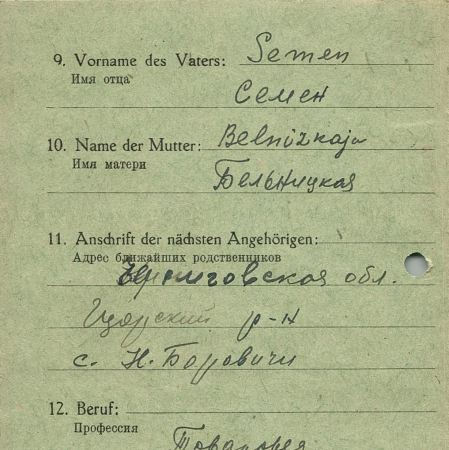 9. Vorname des Vaters: Semen
Имя отца
Семен
10. Name der Mutter: Belnizkaja
Имя матери
Бельницкая
11. Anschrift der nächsten Angehörigen:
Адрес ближайших родственников
Черниговская обл.
Щорский р-н
с. Н. Боровичи
12. Beruf:
Профессия